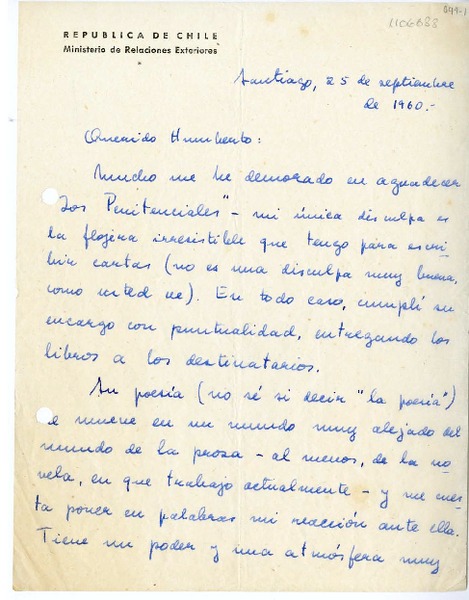 649-1
REPUBLICA DE CHILE
Ministerio de Relaciones Exteriores
Santiago, 25 de septiembre
de 1960.-
Querido Humberto:
Mucho me he demorado en agradecer
"Los Penitenciales" - mi única disculpa es
la flojera irresistible que tengo para escri-
bir cartas (no es una disculpa muy buena,
como usted ve). En todo caso, cumplí su
encargo con puntualidad, entregando los
libros a los destinatarios.
Su poesía (no sé si decir "la poesía")
se mueve en un mundo muy alejado del
mundo de la prosa - al menos, de la no-
vela, en que trabajo actualmente - y me cues-
ta poner en palabras mi reacción ante ella.
Tiene un poder y una atmósfera muy